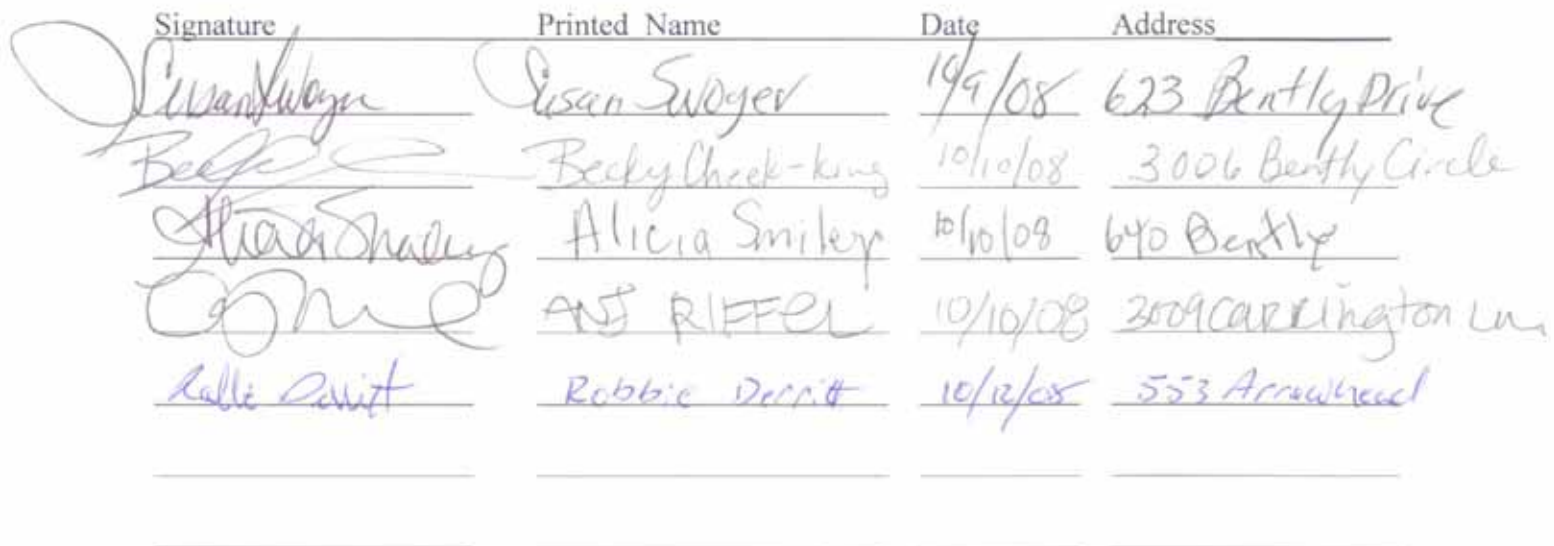 Signature Printed Name Date Address
Susan Swoyer Susan Swoyer 10/9/08 623 Bently Drive
Becky Cheek-king 10/10/08 3006 Bently Circle
Alicia Smiley Alicia Smiley 10/10/08 640 Bently
RIFFEL 10/10/08 3009 Carrington Ln
Robbie Derritt Robbie Derritt 10/12/08 553 Arrowhead